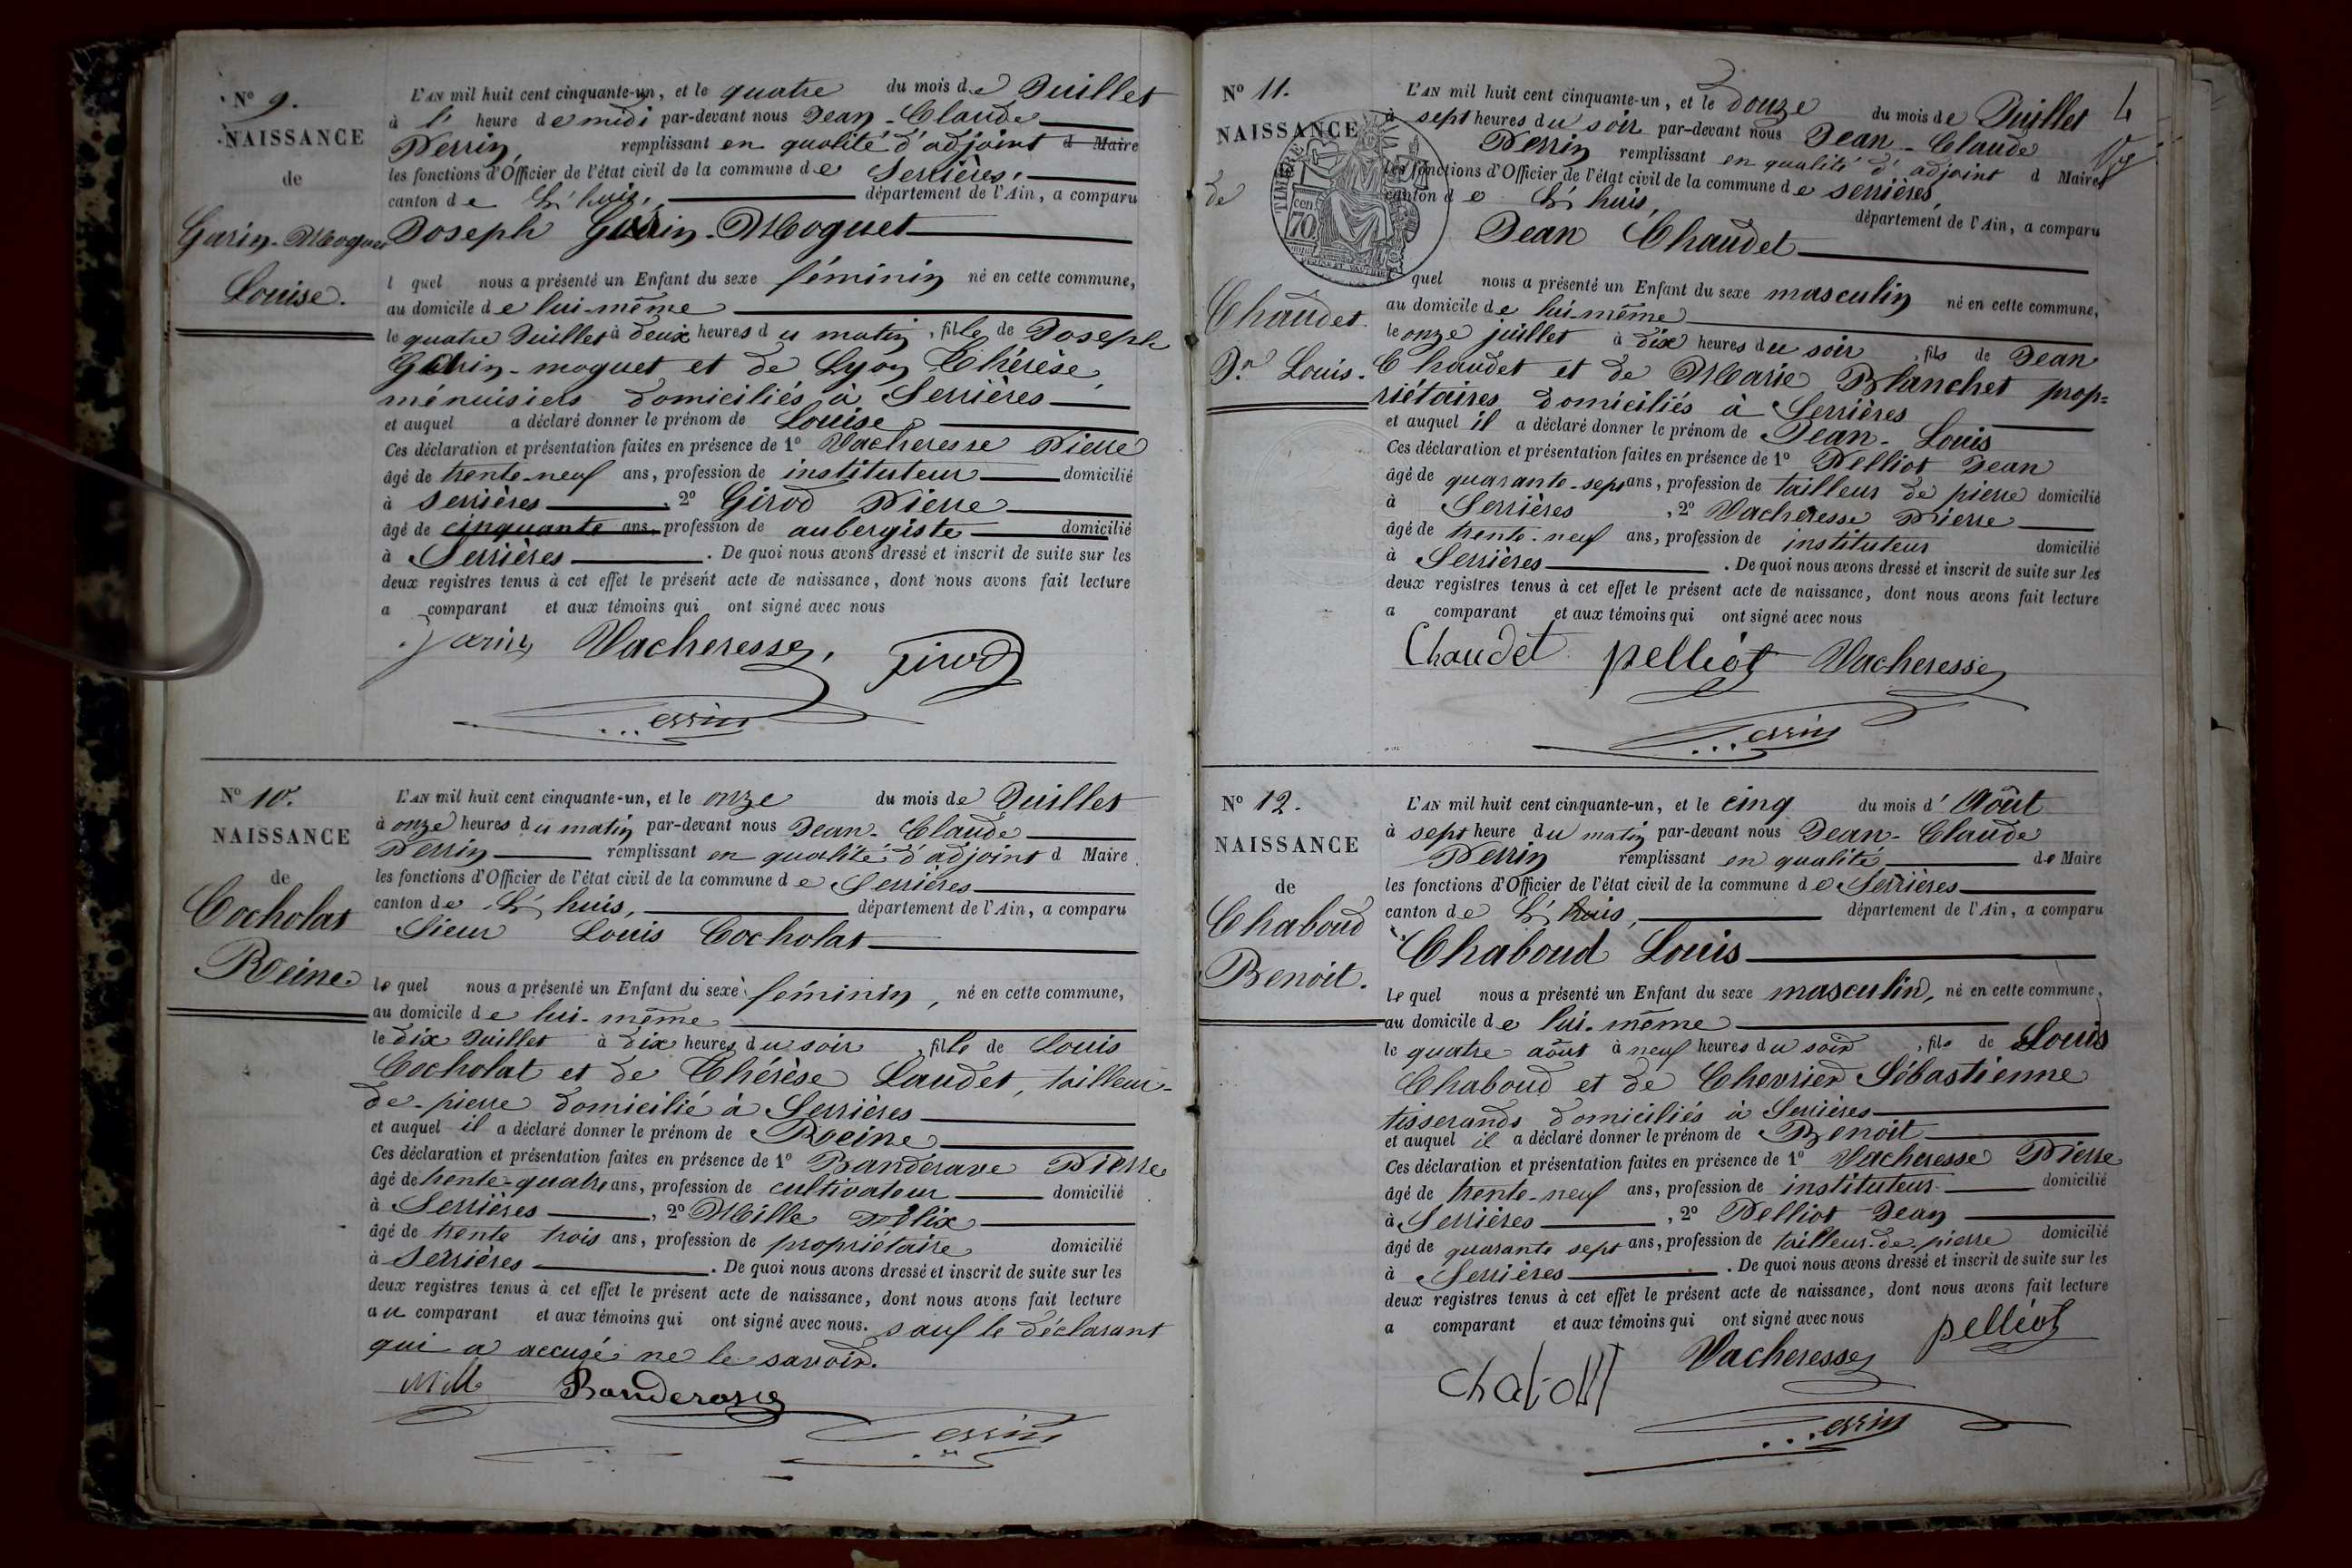 N° 9.
NAISSANCE
de
Garin-Moguet
Louise.
L'AN mil huit cent cinquante-un, et le quatre du mois de Juillet
à l' heure de midi par-devant nous Jean-Claude
Perrin, remplissant en qualité d'adjoint d Maire
les fonctions d'Officier de l'état civil de la commune de Serrières,
canton de L'huis, département de l'Ain, a comparu
Joseph Garin-Moguet
l quel nous a présenté un Enfant du sexe féminin né en cette commune,
au domicile de lui-même
le quatre Juillet à deux heures du matin, fille de Joseph
Garin-moguet et de Lyon Thérèse,
ménuisiers domiciliés à Serrières
et auquel a déclaré donner le prénom de Louise
Ces déclaration et présentation faites en présence de 1° Vacheresse Pierre
âgé de trente-neuf ans, profession de instituteur domicilié
à Serrières, 2° Girod Pierre
âgé de cinquante ans, profession de aubergiste domicilié
à Serrières. De quoi nous avons dressé et inscrit de suite sur les
deux registres tenus à cet effet le présent acte de naissance, dont nous avons fait lecture
a comparant et aux témoins qui ont signé avec nous
garin Vacheresse, girod
Perrin
N° 10.
NAISSANCE
de
Cocholat
Reine
L'AN mil huit cent cinquante-un, et le onze du mois de Juillet
à onze heures du matin par-devant nous Jean-Claude
Perrin remplissant en qualité d'adjoint d Maire
les fonctions d'Officier de l'état civil de la commune de Serrières
canton de L'huis, département de l'Ain, a comparu
Sieur Louis Cocholat
le quel nous a présenté un Enfant du sexe féminin, né en cette commune,
au domicile de lui-même
le dix Juillet à dix heures du soir, fille de Louis
Cocholat et de Thérèse Laudet, tailleur-
de-pierre domicilié à Serrières
et auquel il a déclaré donner le prénom de Reine
Ces déclaration et présentation faites en présence de 1° Banderave Pierre
âgé de trente-quatre ans, profession de cultivateur domicilié
à Serrières, 2° Mille Félix
âgé de trente trois ans, profession de propriétaire domicilié
à Serrières. De quoi nous avons dressé et inscrit de suite sur les
deux registres tenus à cet effet le présent acte de naissance, dont nous avons fait lecture
au comparant et aux témoins qui ont signé avec nous. sauf le déclarant
qui a accusé ne le savoir.
Banderave
Perrin
4
N° 11.
NAISSANCE
de
Chaudet
Jn Louis.
TIMBRE
70 cen
L'AN mil huit cent cinquante-un, et le douze du mois de Juillet
à sept heures du soir par-devant nous Jean-Claude
Perrin remplissant en qualité d'adjoint d Maire
les fonctions d'Officier de l'état civil de la commune de serrières,
canton de L'huis, département de l'Ain, a comparu
Jean Chaudet
quel nous a présenté un Enfant du sexe masculin né en cette commune,
au domicile de lui-même
le onze juillet à dix heures du soir, fils de Jean
Chaudet et de Marie Blanchet prop=
riétaires domiciliés à Serrières
et auquel il a déclaré donner le prénom de Jean-Louis
Ces déclaration et présentation faites en présence de 1° Pelliot Jean
âgé de quarante-sept ans, profession de tailleur de pierre domicilié
à Serrières, 2° Vacheresse Pierre
âgé de trente-neuf ans, profession de instituteur domicilié
à Serrières. De quoi nous avons dressé et inscrit de suite sur les
deux registres tenus à cet effet le présent acte de naissance, dont nous avons fait lecture
a comparant et aux témoins qui ont signé avec nous
Chaudet pelliot Vacheresse
Perrin
N° 12.
NAISSANCE
de
Chaboud
Benoit.
L'AN mil huit cent cinquante-un, et le cinq du mois d' Août
à sept heure du matin par-devant nous Jean-Claude
Perrin remplissant en qualité de Maire
les fonctions d'Officier de l'état civil de la commune de Serrières
canton de L'huis, département de l'Ain, a comparu
Chaboud Louis
le quel nous a présenté un Enfant du sexe masculin, né en cette commune,
au domicile de lui-même
le quatre août à neuf heures du soir, fils de Louis
Chaboud et de Chevrier Sébastienne
tisserands domiciliés à Serrières
et auquel il a déclaré donner le prénom de Benoit
Ces déclaration et présentation faites en présence de 1° Vacheresse Pierre
âgé de trente-neuf ans, profession de instituteur domicilié
à Serrières, 2° Pelliot Jean
âgé de quarante sept ans, profession de tailleur-de-pierre domicilié
à Serrières. De quoi nous avons dressé et inscrit de suite sur les
deux registres tenus à cet effet le présent acte de naissance, dont nous avons fait lecture
a comparant et aux témoins qui ont signé avec nous
Vacheresse pelliot
Perrin